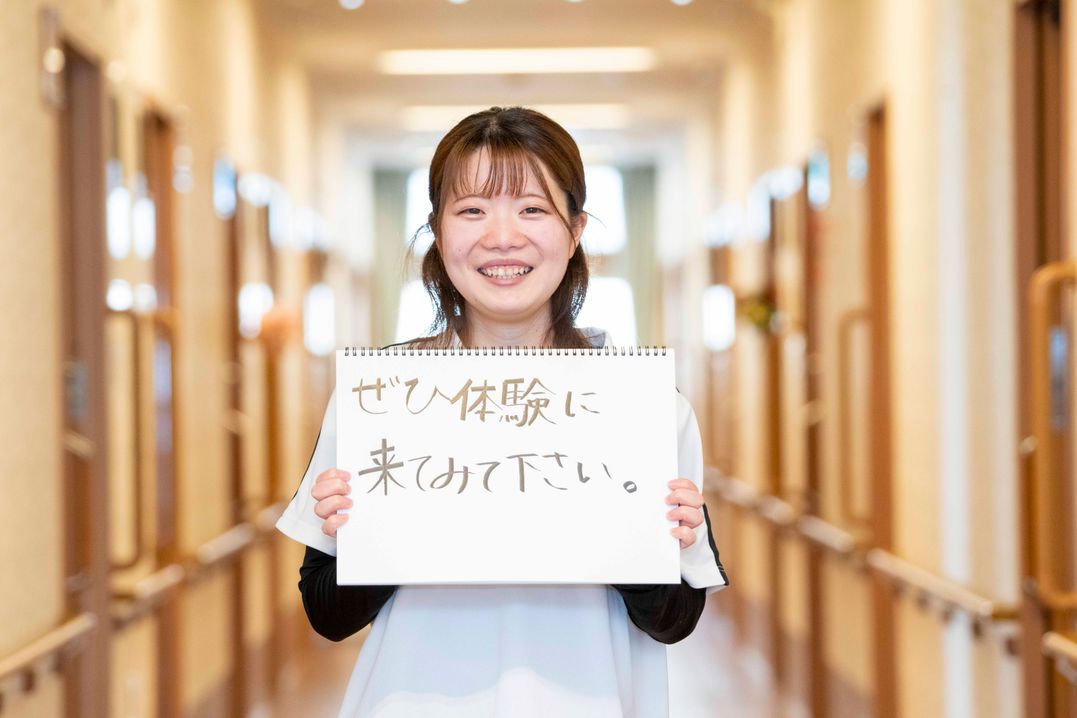 ぜひ体験に
来てみて下さい。